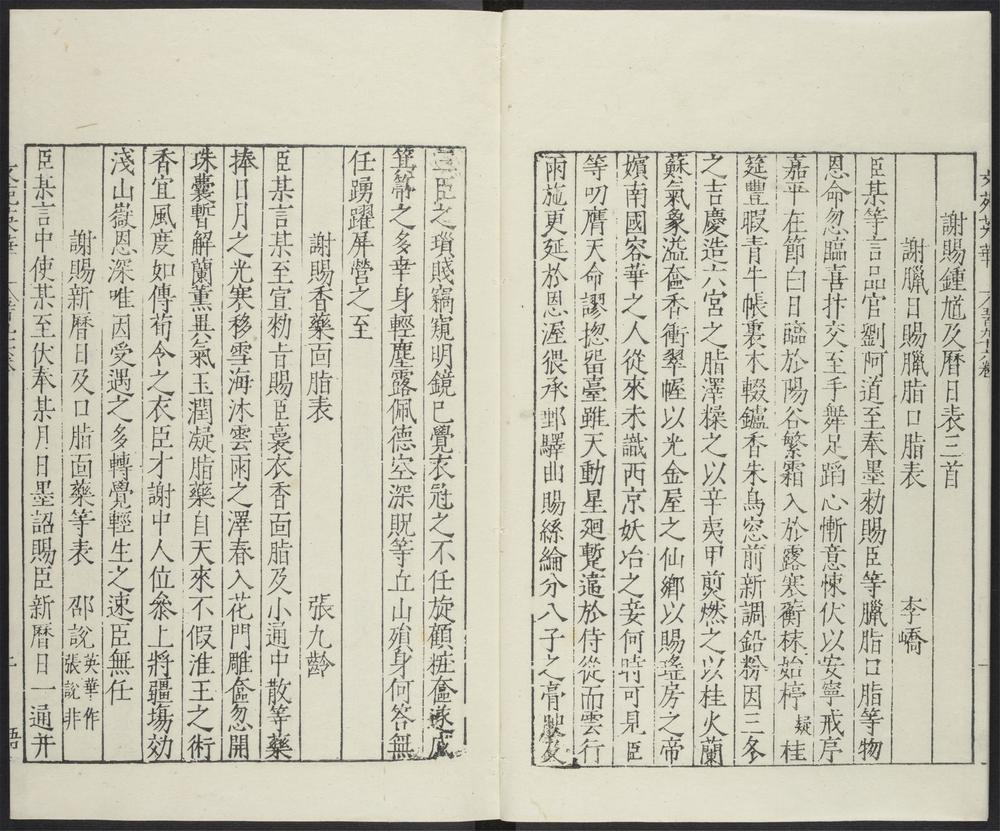 謝賜鍾馗及曆日表三首
謝臘日賜臘脂口脂表　李嶠
臣某等言品官劉阿道至奉墨勑賜臣等臘脂口脂等物
恩命忽臨喜抃交至手舞足蹈心慚意悚伏以安寧戒序
嘉平在節白日臨於陽谷繁霜入於露寒蘅秣始椁疑桂
筵豐暇青牛帳裏未輟鑪香朱鳥窓前新調鉛粉因三冬
之吉慶造六宮之脂澤糅之以辛夷甲煎燃之以桂火蘭
蘇氣象溢奩香衝翠幄以光金屋之仙鄉以賜瑤房之帝
嬪南國容華之人從來未識西京妖冶之妾何時可見臣
等叨膺天命謬揔留臺雖天動星廻蹔違於侍從而雲行
雨施更延於恩渥猥承郵驛曲賜絲綸分八子之膏
臣之瑣賤竊窺明鏡已覺衣冠之不任旋顧粧奩遂
箕箒之多幸身輕塵露佩德空深貺等丘山殞身何答無
任踴躍屏營之至
謝賜香藥面脂表　張九齡
臣某言某至宣勑旨賜臣裛衣香面脂及小通中散等藥
捧日月之光寒移雪海沐雲雨之澤春入花門雕奩忽開
珠囊暫解蘭薰異氣玉潤凝脂藥自天來不假淮王之術
香宜風度如傳荀令之衣臣才謝中人位叅上將疆場効
淺山嶽恩深唯因受遇之多轉覺輕生之速臣無任
謝賜新曆日及口脂面藥等表　邵說英華作張說非
臣某言中使某至伏奉某月日墨詔賜臣新曆日一通并